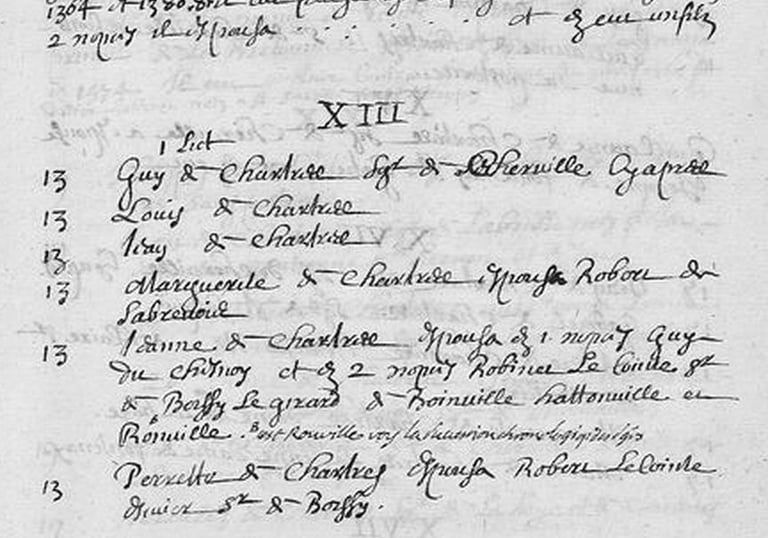 2 nopces il espousa . . . . . et d eut un filz
XIII
1 Lict
13 Guy de Chartres Sgr de Cherville Cy apres
13 Louis de Chartres
13 Jean de Chartres
13 Marguerite de Chartres, espousa Robert de
Sabrevoie
13 Jeanne de Chartres espousa en 1. nopces Guy
du Chesnoy et en 2 nopces Robinet Le Cointe sr
de Boissy Le girard de Boinville hattonville et
Ronville . B est Rouville voy la succession chronologique des
13 Perrette de Chartres espousa Robert LeCointe
sr de Boissy.